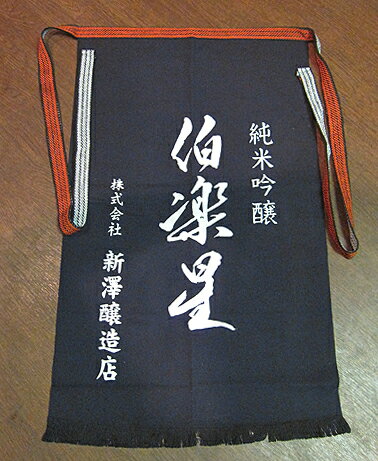 純米吟醸
伯楽星
株式会社 新澤醸造店